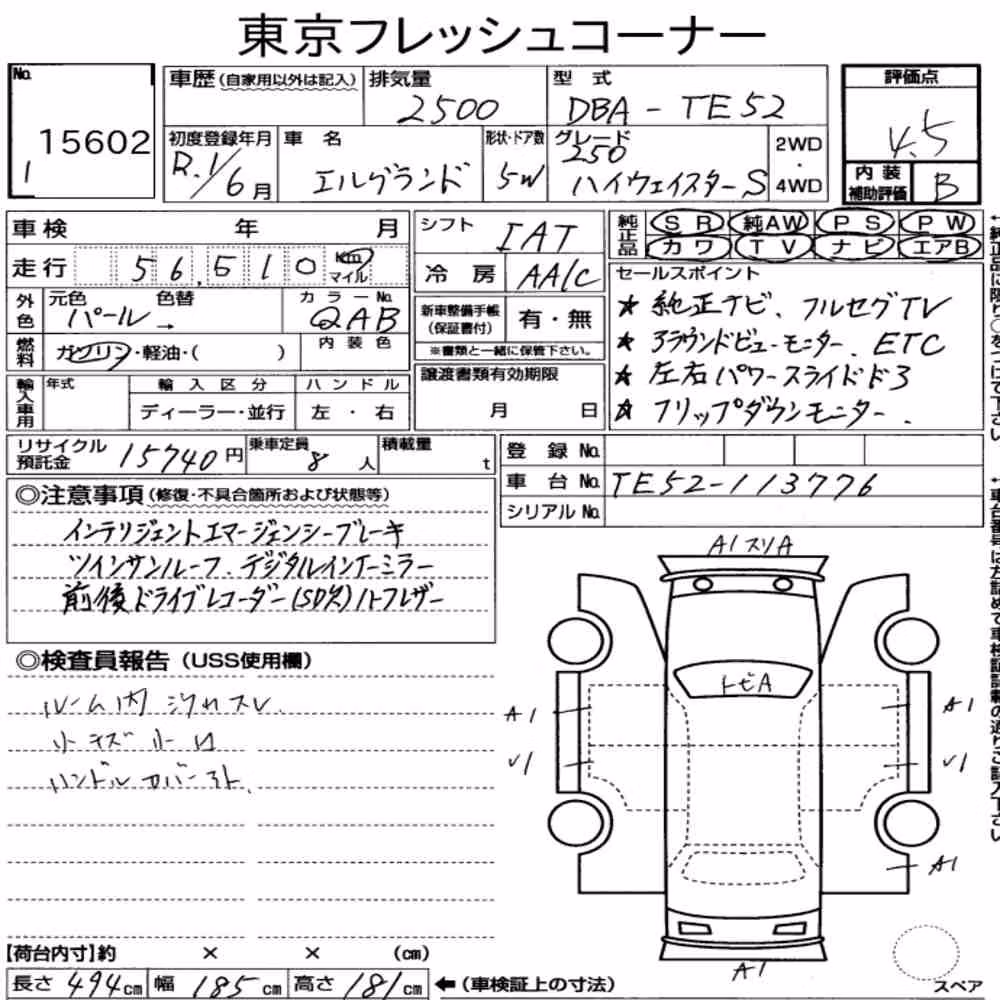 東京フレッシュコーナー
No.
15602
1
車歴(自家用以外は記入)
排気量
2500
型式
DBA-TE52
評価点
4.5
初度登録年月
R.1/6月
車名
エルグランド
形状・ドア数
5W
グレード
250
ハイウェイスターS
2WD
・
4WD
内装
補助評価
B
車検 年 月
シフト
IAT
純正品
SR 純AW PS PW
カワ TV ナビ エアB
走行 56,510 Km マイル
冷房 AA/C
セールスポイント
★ 純正ナビ、フルセグTV
★ アラウンドビューモニター、ETC
★ 左右パワースライドドア
★ フリップダウンモニター、
外色
元色 色替
パール→
カラーNo.
QAB
内装色
新車整備手帳
(保証書付)
有・無
※書類と一緒に保管下さい。
燃料
ガソリン・軽油・( )
輸入車用
年式
輸入区分
ディーラー・並行
ハンドル
左・右
譲渡書類有効期限
月 日
リサイクル
預託金
15740円
乗車定員
8人
積載量
t
登録No.
車台No. TE52-113776
シリアルNo.
◎注意事項(修復・不具合箇所および状態等)
インテリジェントエマージェンシーブレーキ
ツインサンルーフ、デジタルインナーミラー
前後ドライブレコーダー(SD欠)ハーフレザー
◎検査員報告(USS使用欄)
ルーム内 ヨゴレスレ、
ハンドルカバー
A1スリA
トビA
A1
A1
A1
A1
スペア
【荷台内寸】約 × × (cm)
長さ 494cm 幅 185cm 高さ 181cm ←(車検証上の寸法)